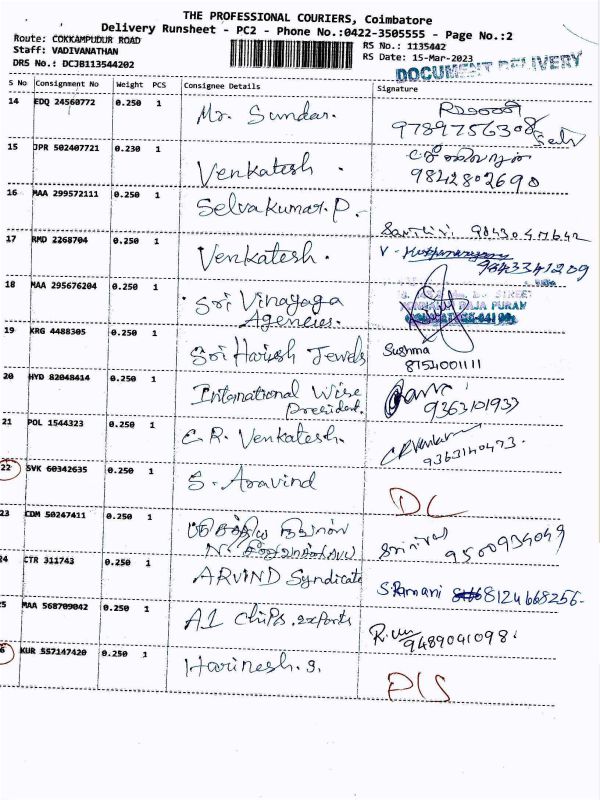 THE PROFESSIONAL COURIERS, Coimbatore
Delivery Runsheet - PC2 - Phone No.:0422-3505555 - Page No.:2
Route: COKKAMPUDUR ROAD
RS No.: 1135442
Staff: VADIVANATHAN
RS Date: 15-Mar-2023
DRS No.: DCJB113544202
DOCUMENT DELIVERY
S No Consignment No Weight PCS Consignee Details Signature
14 EDQ 24560772 0.250 1 Mr. Sundar.
9789756308
15 JPR 502407721 0.230 1 Venkatesh.
9842802690
16 MAA 299572111 0.250 1 Selvakumar.P.-
17 RMD 2268704 0.250 1 Venkatesh.
9843341209
18 MAA 295676204 0.250 1 Sri Vinayaga
Agencies.
19 KRG 4488305 0.250 1 Sri Harish Jewels Sushma
8754001111
20 HYD 82048414 0.250 1 International Wise
President.
21 POL 1544323 0.250 1 C.R. Venkatesh.
9363140473.
22 SVK 60342635 0.250 1 S. Aravind DL
23 CDM 50247411 0.250 1
9500934049
24 CTR 311743 0.250 1 ARVIND Syndicate S.Ramani 8124668256-
25 MAA 568709042 0.250 1 A1 Chips.exports
9489041098.
26 KUR 557147420 0.250 1 Harinesh.S. DIS